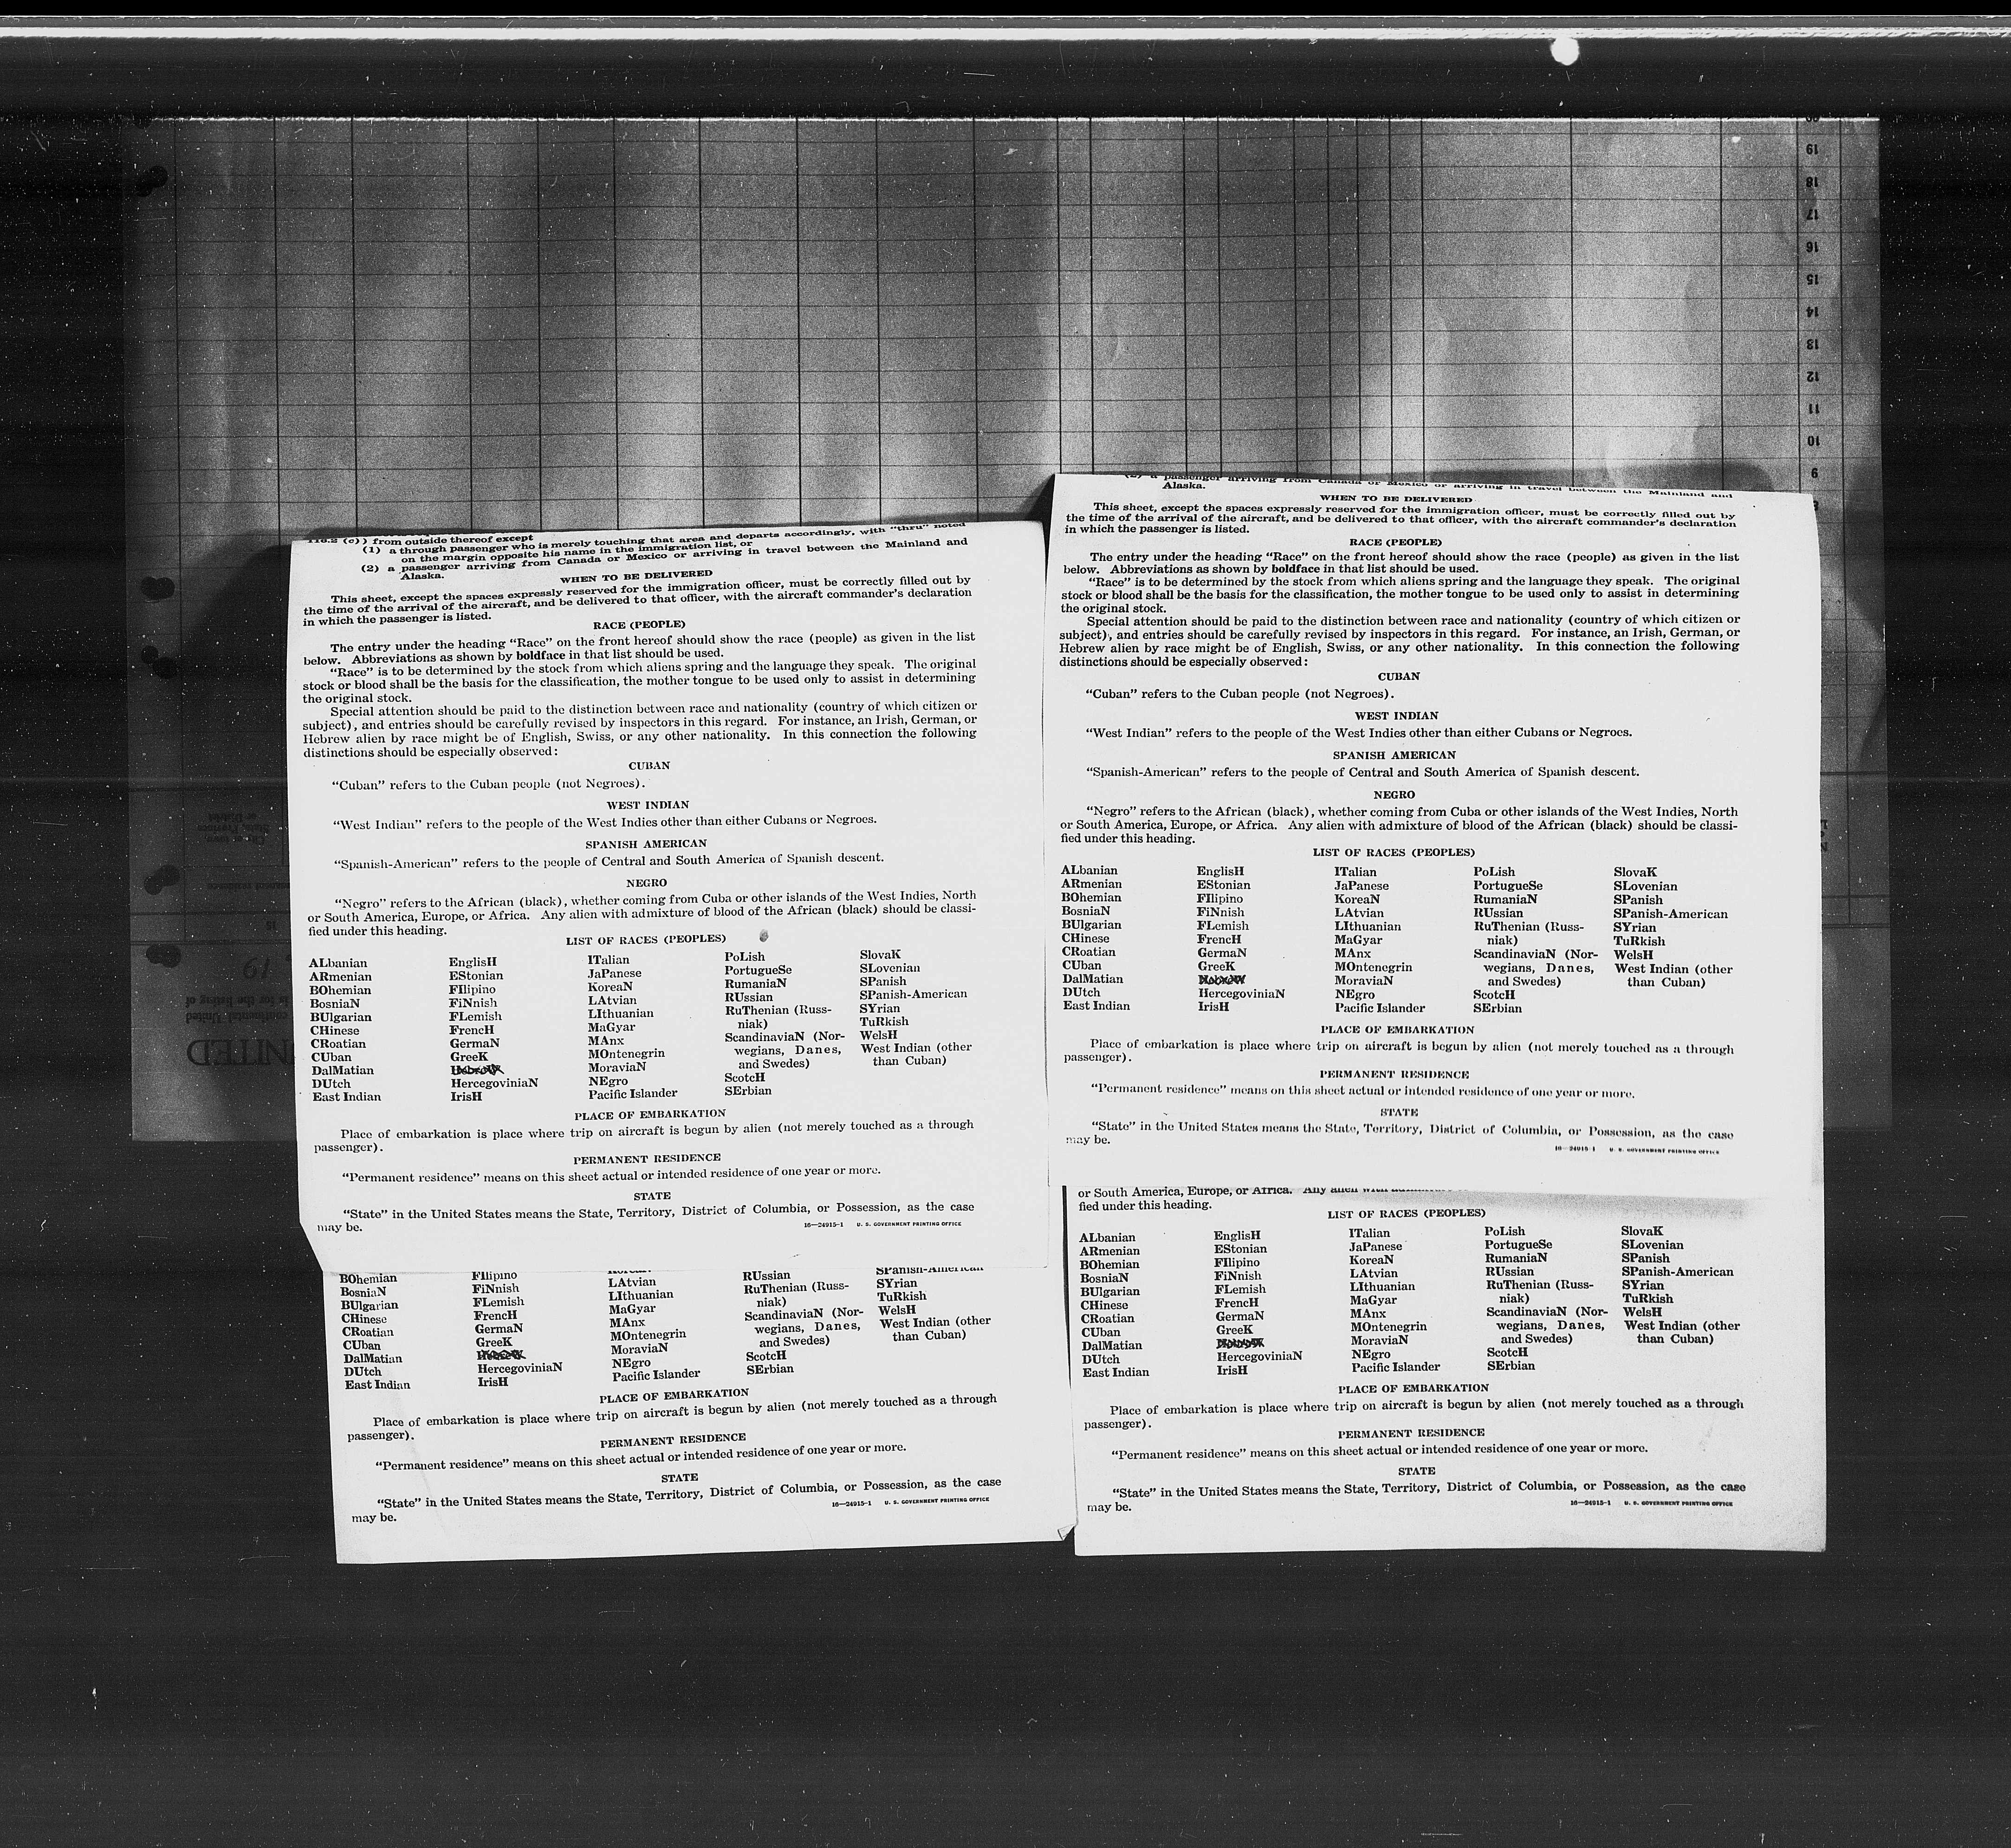 19
18
17
16
15
14
13
12
11
10
9
116.2 (c)) from outside thereof except
(1) a through passenger who is merely touching that area and departs accordingly, with "thru" noted
on the margin opposite his name in the immigration list, or
(2) a passenger arriving from Canada or Mexico or arriving in travel between the Mainland and
Alaska.
WHEN TO BE DELIVERED
This sheet, except the spaces expressly reserved for the immigration officer, must be correctly filled out by
the time of the arrival of the aircraft, and be delivered to that officer, with the aircraft commander's declaration
in which the passenger is listed.
RACE (PEOPLE)
The entry under the heading "Race" on the front hereof should show the race (people) as given in the list
below. Abbreviations as shown by boldface in that list should be used.
"Race" is to be determined by the stock from which aliens spring and the language they speak. The original
stock or blood shall be the basis for the classification, the mother tongue to be used only to assist in determining
the original stock.
Special attention should be paid to the distinction between race and nationality (country of which citizen or
subject), and entries should be carefully revised by inspectors in this regard. For instance, an Irish, German, or
Hebrew alien by race might be of English, Swiss, or any other nationality. In this connection the following
distinctions should be especially observed:
CUBAN
"Cuban" refers to the Cuban people (not Negroes).
WEST INDIAN
"West Indian" refers to the people of the West Indies other than either Cubans or Negroes.
SPANISH AMERICAN
"Spanish-American" refers to the people of Central and South America of Spanish descent.
NEGRO
"Negro" refers to the African (black), whether coming from Cuba or other islands of the West Indies, North
or South America, Europe, or Africa. Any alien with admixture of blood of the African (black) should be classi-
fied under this heading.
LIST OF RACES (PEOPLES)
ALbanian
ARmenian
BOhemian
BosniaN
BUlgarian
CHinese
CRoatian
CUban
DalMatian
DUtch
East Indian
EnglisH
EStonian
FIlipino
FiNnish
FLemish
FrencH
GermaN
GreeK
HebreW
HercegoviniaN
IrisH
ITalian
JaPanese
KoreaN
LAtvian
LIthuanian
MaGyar
MAnx
MOntenegrin
MoraviaN
NEgro
Pacific Islander
PoLish
PortugueSe
RumaniaN
RUssian
RuThenian (Russ-
niak)
ScandinaviaN (Nor-
wegians, Danes,
and Swedes)
ScotcH
SErbian
SlovaK
SLovenian
SPanish
SPanish-American
SYrian
TuRkish
WelsH
West Indian (other
than Cuban)
PLACE OF EMBARKATION
Place of embarkation is place where trip on aircraft is begun by alien (not merely touched as a through
passenger).
PERMANENT RESIDENCE
"Permanent residence" means on this sheet actual or intended residence of one year or more.
STATE
"State" in the United States means the State, Territory, District of Columbia, or Possession, as the case
may be.
16—24915-1 U. S. GOVERNMENT PRINTING OFFICE
(2) a passenger arriving from Canada or Mexico or arriving in travel between the Mainland and
Alaska.
WHEN TO BE DELIVERED
This sheet, except the spaces expressly reserved for the immigration officer, must be correctly filled out by
the time of the arrival of the aircraft, and be delivered to that officer, with the aircraft commander's declaration
in which the passenger is listed.
RACE (PEOPLE)
The entry under the heading "Race" on the front hereof should show the race (people) as given in the list
below. Abbreviations as shown by boldface in that list should be used.
"Race" is to be determined by the stock from which aliens spring and the language they speak. The original
stock or blood shall be the basis for the classification, the mother tongue to be used only to assist in determining
the original stock.
Special attention should be paid to the distinction between race and nationality (country of which citizen or
subject), and entries should be carefully revised by inspectors in this regard. For instance, an Irish, German, or
Hebrew alien by race might be of English, Swiss, or any other nationality. In this connection the following
distinctions should be especially observed:
CUBAN
"Cuban" refers to the Cuban people (not Negroes).
WEST INDIAN
"West Indian" refers to the people of the West Indies other than either Cubans or Negroes.
SPANISH AMERICAN
"Spanish-American" refers to the people of Central and South America of Spanish descent.
NEGRO
"Negro" refers to the African (black), whether coming from Cuba or other islands of the West Indies, North
or South America, Europe, or Africa. Any alien with admixture of blood of the African (black) should be classi-
fied under this heading.
LIST OF RACES (PEOPLES)
ALbanian
ARmenian
BOhemian
BosniaN
BUlgarian
CHinese
CRoatian
CUban
DalMatian
DUtch
East Indian
EnglisH
EStonian
FIlipino
FiNnish
FLemish
FrencH
GermaN
GreeK
HebreW
HercegoviniaN
IrisH
ITalian
JaPanese
KoreaN
LAtvian
LIthuanian
MaGyar
MAnx
MOntenegrin
MoraviaN
NEgro
Pacific Islander
PoLish
PortugueSe
RumaniaN
RUssian
RuThenian (Russ-
niak)
ScandinaviaN (Nor-
wegians, Danes,
and Swedes)
ScotcH
SErbian
SlovaK
SLovenian
SPanish
SPanish-American
SYrian
TuRkish
WelsH
West Indian (other
than Cuban)
PLACE OF EMBARKATION
Place of embarkation is place where trip on aircraft is begun by alien (not merely touched as a through
passenger).
PERMANENT RESIDENCE
"Permanent residence" means on this sheet actual or intended residence of one year or more.
STATE
"State" in the United States means the State, Territory, District of Columbia, or Possession, as the case
may be.
16—24915-1 U. S. GOVERNMENT PRINTING OFFICE
BOhemian
BosniaN
BUlgarian
CHinese
CRoatian
CUban
DalMatian
DUtch
East Indian
FIlipino
FiNnish
FLemish
FrencH
GermaN
GreeK
HebreW
HercegoviniaN
IrisH
LAtvian
LIthuanian
MaGyar
MAnx
MOntenegrin
MoraviaN
NEgro
Pacific Islander
RUssian
RuThenian (Russ-
niak)
ScandinaviaN (Nor-
wegians, Danes,
and Swedes)
ScotcH
SErbian
SPanish-American
SYrian
TuRkish
WelsH
West Indian (other
than Cuban)
PLACE OF EMBARKATION
Place of embarkation is place where trip on aircraft is begun by alien (not merely touched as a through
passenger).
PERMANENT RESIDENCE
"Permanent residence" means on this sheet actual or intended residence of one year or more.
STATE
"State" in the United States means the State, Territory, District of Columbia, or Possession, as the case
may be.
16—24915-1 U. S. GOVERNMENT PRINTING OFFICE
or South America, Europe, or Africa. Any alien with
fied under this heading.
LIST OF RACES (PEOPLES)
ALbanian
ARmenian
BOhemian
BosniaN
BUlgarian
CHinese
CRoatian
CUban
DalMatian
DUtch
East Indian
EnglisH
EStonian
FIlipino
FiNnish
FLemish
FrencH
GermaN
GreeK
HebreW
HercegoviniaN
IrisH
ITalian
JaPanese
KoreaN
LAtvian
LIthuanian
MaGyar
MAnx
MOntenegrin
MoraviaN
NEgro
Pacific Islander
PoLish
PortugueSe
RumaniaN
RUssian
RuThenian (Russ-
niak)
ScandinaviaN (Nor-
wegians, Danes,
and Swedes)
ScotcH
SErbian
SlovaK
SLovenian
SPanish
SPanish-American
SYrian
TuRkish
WelsH
West Indian (other
than Cuban)
PLACE OF EMBARKATION
Place of embarkation is place where trip on aircraft is begun by alien (not merely touched as a through
passenger).
PERMANENT RESIDENCE
"Permanent residence" means on this sheet actual or intended residence of one year or more.
STATE
"State" in the United States means the State, Territory, District of Columbia, or Possession, as the case
may be.
16—24915-1 U. S. GOVERNMENT PRINTING OFFICE